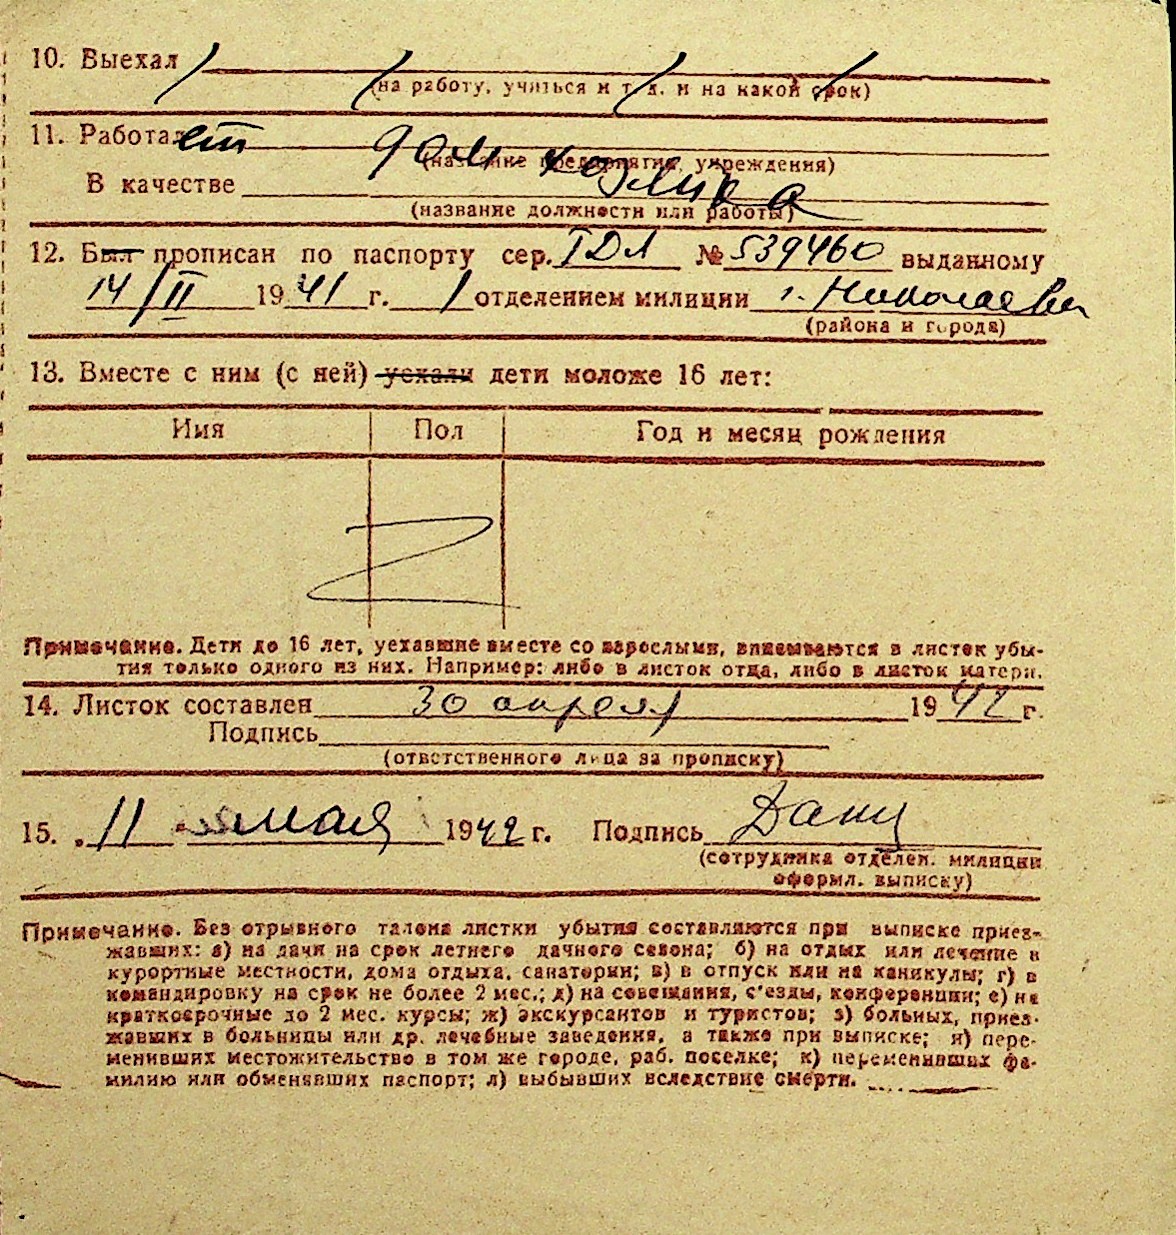 10. Выехал
(на работу, учиться и т. д. и на какой срок)
11. Работает дом хозяйка
(название предприятия, учреждения)
В качестве
(название должности или работы)
12. Был прописан по паспорту сер. ТДЛ № 539460 выданному
14/II 1941 г. 1 отделением милиции г. Николаева
(района и города)
13. Вместе с ним (с ней) уехали дети моложе 16 лет:
Имя Пол Год и месяц рождения
Примечание. Дети до 16 лет, уехавшие вместе со взрослыми, вписываются в листок убы-
тия только одного из них. Например: либо в листок отца, либо в листок матери.
14. Листок составлен 30 апреля 1942 г.
Подпись
(ответственного лица за прописку)
15. „11 мая 1942 г. Подпись
(сотрудника отделен. милиции
оформл. выписку)
Примечание. Без отрывного талона листки убытия составляются при выписке приез-
жавших: а) на дачи на срок летнего дачного сезона; б) на отдых или лечение в
курортные местности, дома отдыха, санатории; в) в отпуск или на каникулы; г) в
командировку на срок не более 2 мес.; д) на совещания, с'езды, конференции; е) на
краткосрочные до 2 мес. курсы; ж) экскурсантов и туристов; з) больных, приез-
жавших в больницы или др. лечебные заведения, а также при выписке; и) пере-
менивших местожительство в том же городе, раб. поселке; к) переменивших фа-
милию или обменявших паспорт; л) выбывших вследствие смерти.